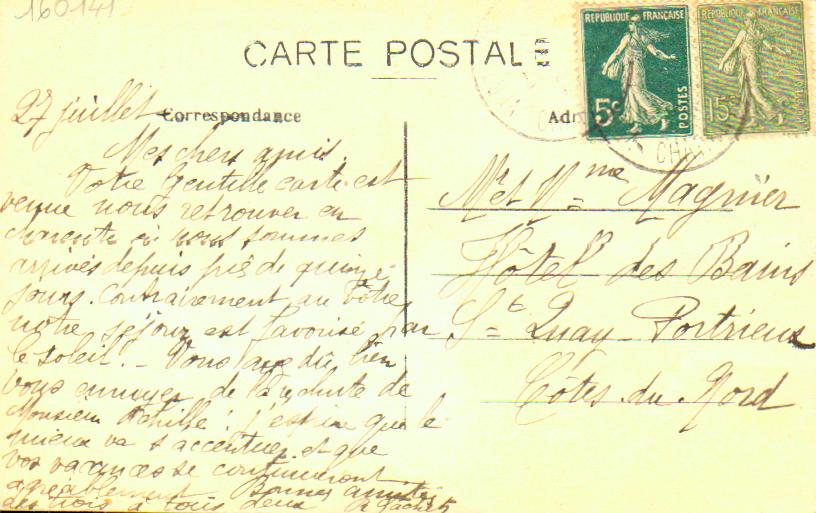 160141
CARTE POSTALE
RÉPUBLIQUE FRANÇAISE
5c
POSTES
RÉPUBLIQUE FRANÇAISE
15c
CHA
Correspondance
Adr
27 juillet
Mes chers amis.
Votre gentille carte est
venue nous retrouver en
charente où nous sommes
arrivés depuis près de quinze
jours. Contrairement au vôtre
notre séjour est favorisé par
le soleil. - Vous avez dû bien
vous ennuyer de la chute de
Monsieur Achille ! j'espère que le
mieux va s'accentuer et que
vos vacances se continueront
agréablement Bonnes amitiés
des trois à tous deux
Mr et Mme Magnier
Hôtel des Bains
St Quay-Portrieux
Côtes-du-Nord